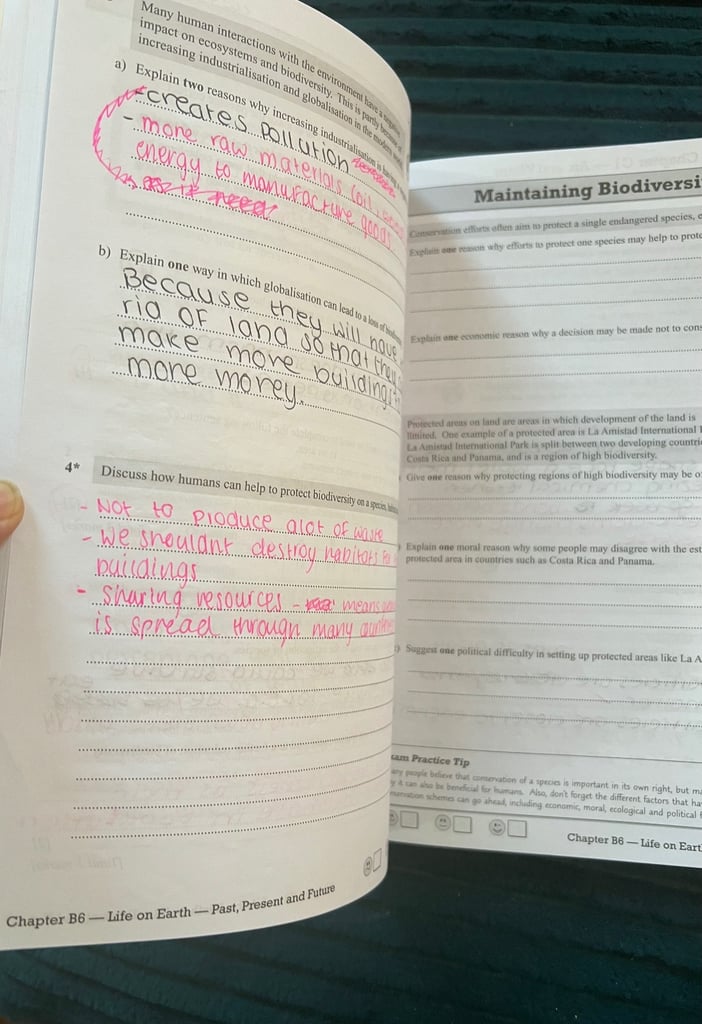 Many human interactions with the environment have a
impact on ecosystems and biodiversity. This is partly because
increasing industrialisation and globalisation in the modern
a) Explain two reasons why increasing industrialisation is having
-creates pollution
- more raw materials (oil,
energy to manufacture goods
b) Explain one way in which globalisation can lead to a loss of
Because they will have
ria of land so that they
make more building
more money.
4* Discuss how humans can help to protect biodiversity on a species,
- Not to produce alot of waste
- We shouldnt destroy habitats
buildings
- sharing resources - means
is spread through many
Chapter B6 — Life on Earth — Past, Present and Future
Maintaining
Conservation efforts often aim to protect a single endangered species,
Explain one reason why efforts to protect one species may help to
Explain one economic reason why a decision may be made not to
Protected areas on land are areas in which development of the land is
limited. One example of a protected area is La Amistad International
La Amistad International Park is split between two developing
Costa Rica and Panama, and is a region of high biodiversity.
Give one reason why protecting regions of high biodiversity may be
Explain one moral reason why some people may disagree with the
protected area in countries such as Costa Rica and Panama.
Suggest one political difficulty in setting up protected areas like La
Practice Tip
people believe that conservation of a species is important in its own right, but
it can also be beneficial for humans. Also, don't forget the different factors that
schemes can go ahead, including economic, moral, ecological and political
Chapter B6 — Life on